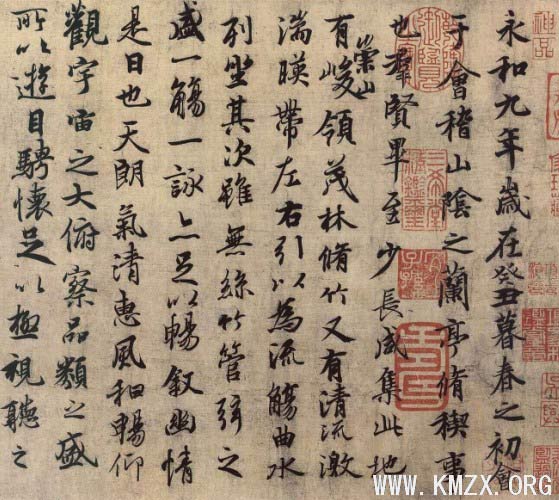 永和九年歲在癸丑暮春之初會
于會稽山陰之蘭亭脩稧事
也羣賢畢至少長咸集此地
有崇山峻領茂林脩竹又有清流激
湍暎帶左右引以為流觴曲水
列坐其次雖無絲竹管弦之
盛一觴一詠亦足以暢叙幽情
是日也天朗氣清惠風和暢仰
觀宇宙之大俯察品類之盛
所以遊目騁懷足以極視聽之
神品
三希堂精鑑璽
宜子孫
WWW.KMZX.ORG